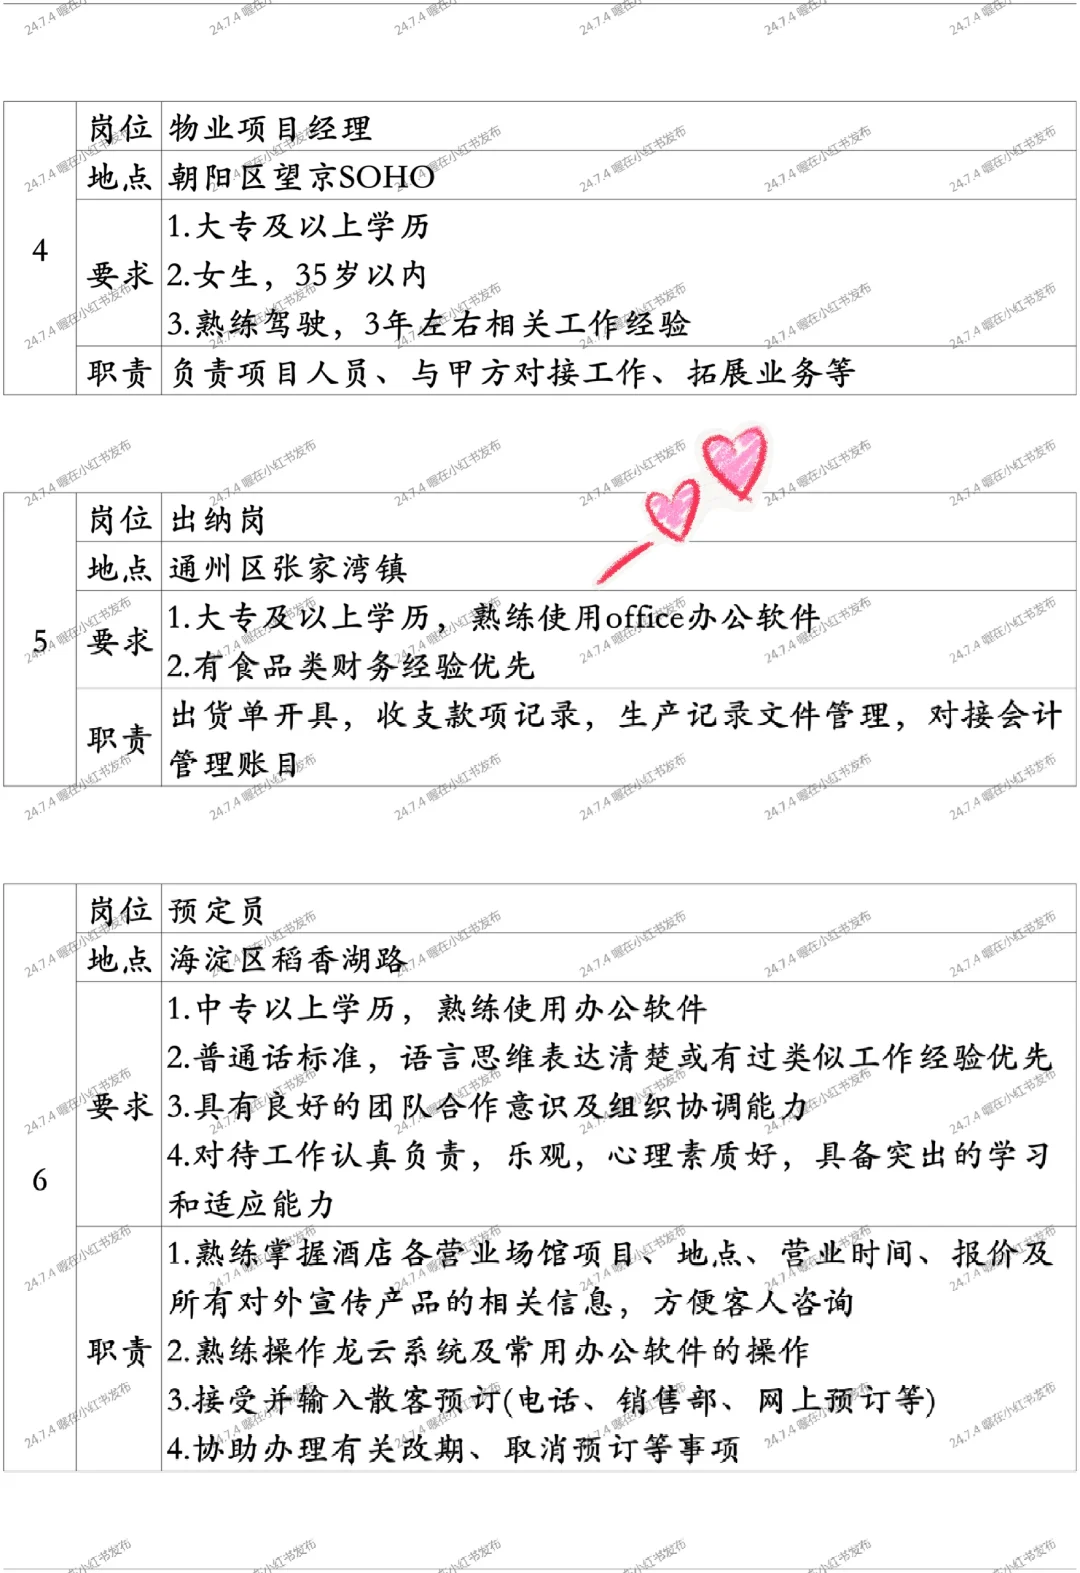 4
岗位 物业项目经理
地点 朝阳区望京SOHO
要求
1.大专及以上学历
2.女生，35岁以内
3.熟练驾驶，3年左右相关工作经验
职责 负责项目人员、与甲方对接工作、拓展业务等
5
岗位 出纳岗
地点 通州区张家湾镇
要求
1.大专及以上学历，熟练使用office办公软件
2.有食品类财务经验优先
职责
出货单开具，收支款项记录，生产记录文件管理，对接会计
管理账目
6
岗位 预定员
地点 海淀区稻香湖路
要求
1.中专以上学历，熟练使用办公软件
2.普通话标准，语言思维表达清楚或有过类似工作经验优先
3.具有良好的团队合作意识及组织协调能力
4.对待工作认真负责，乐观，心理素质好，具备突出的学习
和适应能力
职责
1.熟练掌握酒店各营业场馆项目、地点、营业时间、报价及
所有对外宣传产品的相关信息，方便客人咨询
2.熟练操作龙云系统及常用办公软件的操作
3.接受并输入散客预订(电话、销售部、网上预订等)
4.协助办理有关改期、取消预订等事项
24.7.4 喔在小红书发布